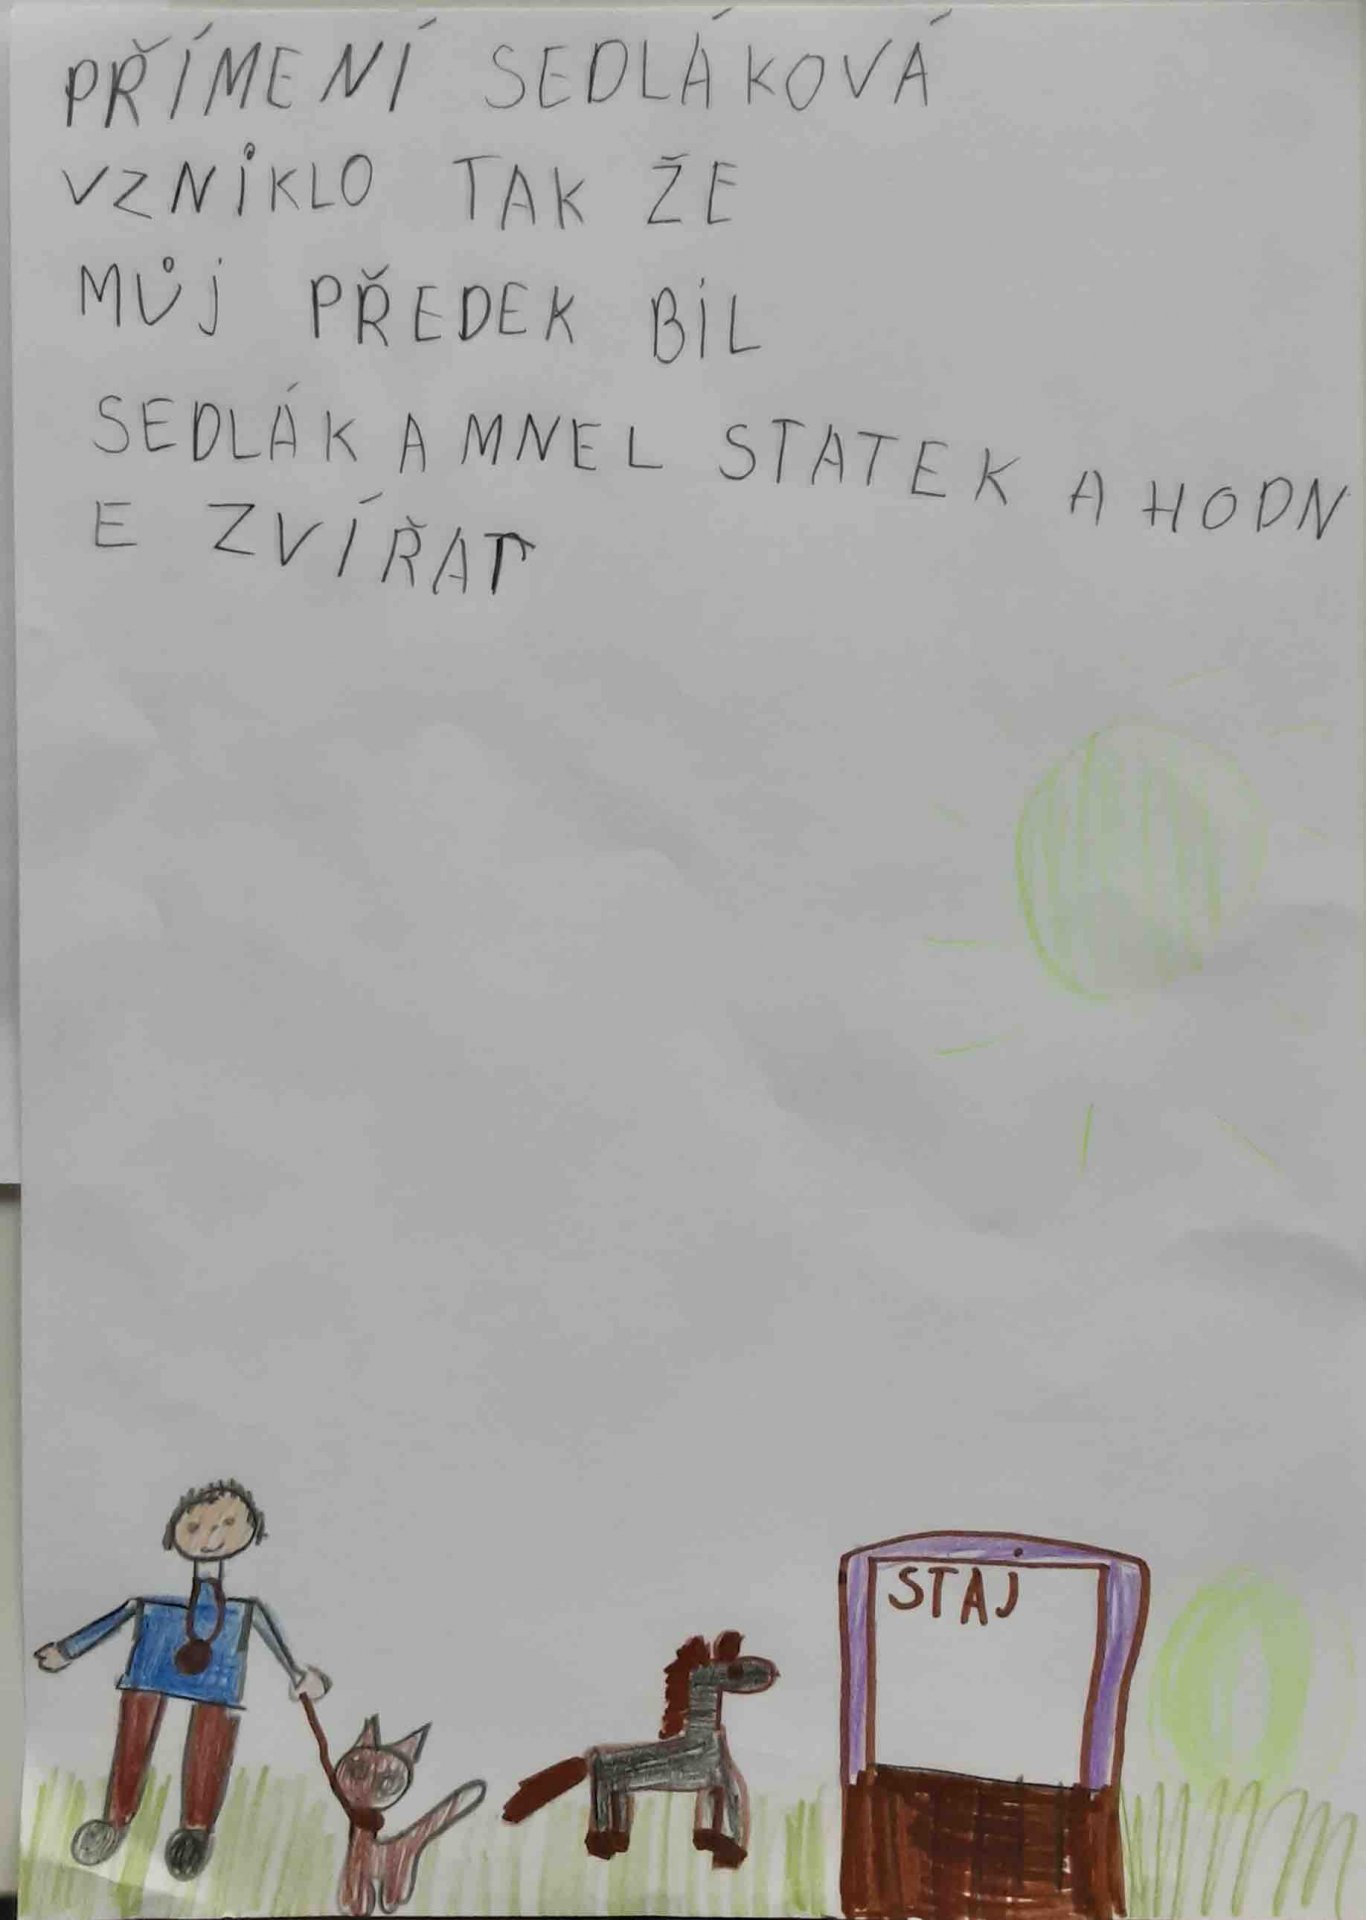 PŘÍMENÍ SEDLÁKOVÁ
VZNIKLO TAK ŽE
MŮJ PŘEDEK BIL
SEDLÁK A MNEL STATEK A HODN
E ZVÍŘAT
STAJ